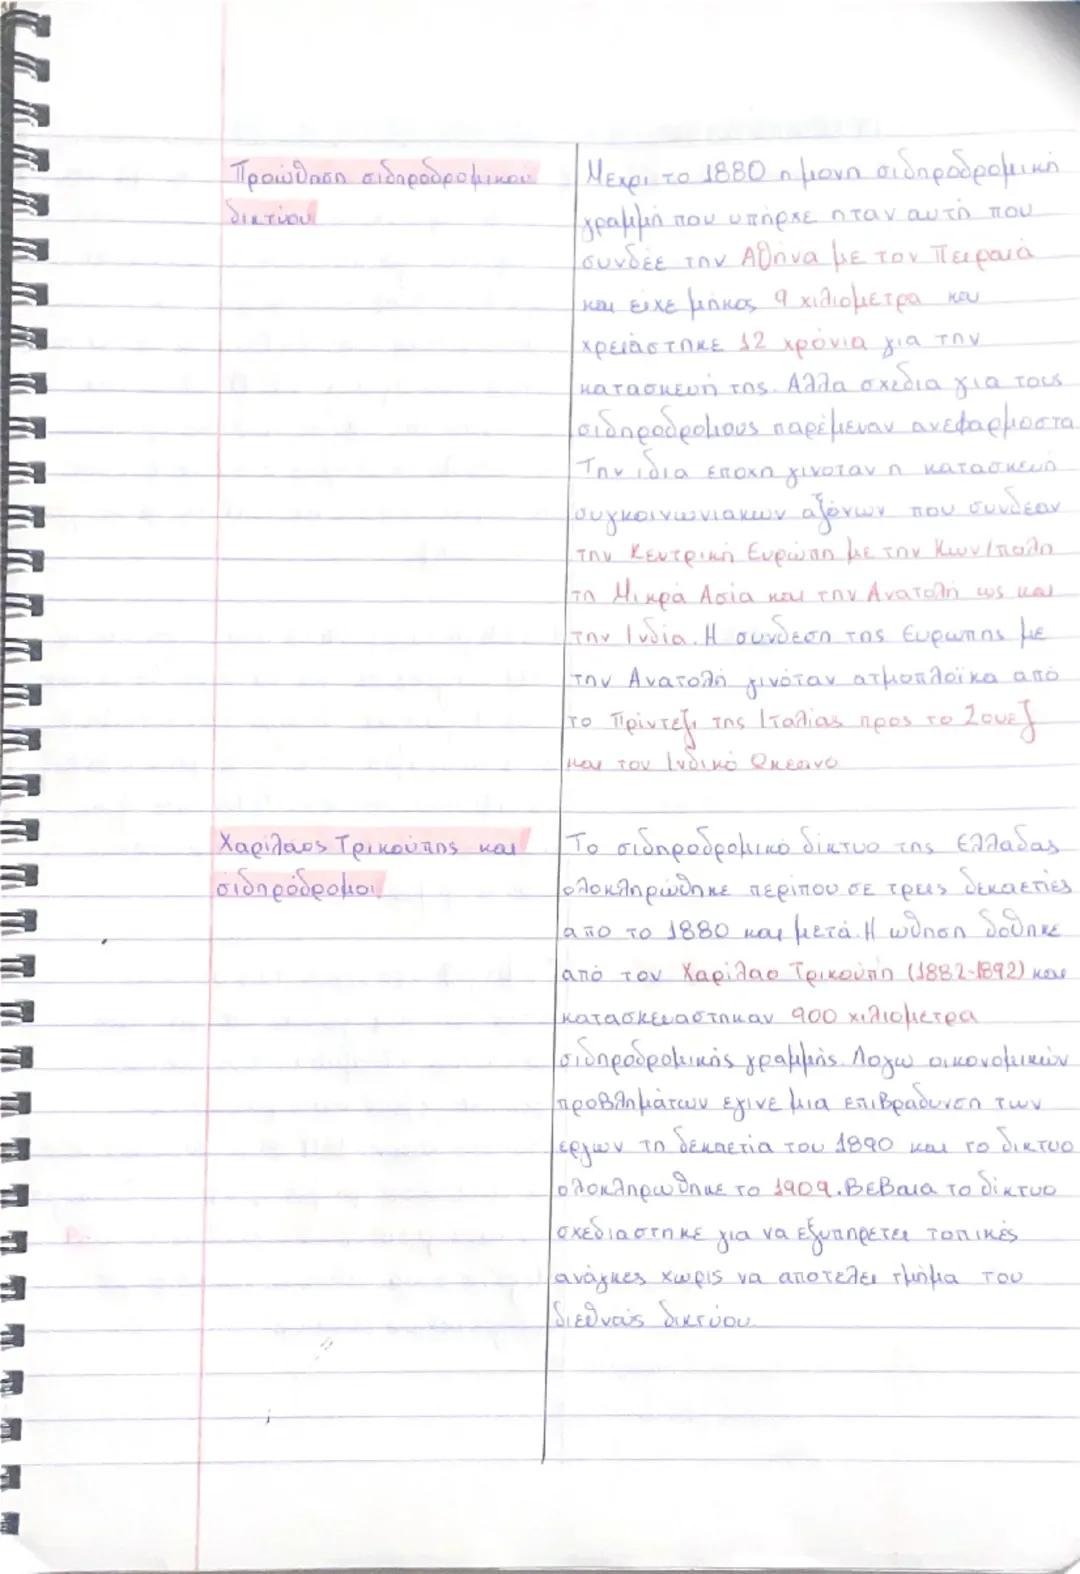 Προώθηση σιδηροδρομικού
δικτύου
Μεχρι το 1880 η μονη σιδηροδρομική
γραμμή που υπήρχε ηταν αυτή που
συνδέε την Αθήνα με τον Πειραιά
και ειχε μήκος 9 χιλιομετρα και
χρειάστηκε 12 χρόνια για την
κατασκευή της. Αλλα σχεδια για τους
σιδηροδρομους παρέμεναν ανεφαρμοστα
Την ιδια εποχη γινοταν η κατασκευη
συγκοινωνιακων αξόνων που συνδεαν
την Κεντρική Ευρώπη με την Κων/πολη
τη Μικρά Ασία και την Ανατολή ως και
την Ινδία. Η συνδεση της Ευρωπης με
την Ανατολή γινόταν ατμοπλοϊκα από
το Πρίντεζι της Ιταλίας προς το Σουεζ
και τον Ινδικό Ωκεανό
Χαρίλαος Τρικούπης και
σιδηρόδρομοι
Το σιδηροδρομικό δικτυο της Ελλαδας
ολοκληρώθηκε περίπου σε τρεις δεκαετίες
απο το 1880 και μετά. Η ωθηση δοθηκε
από τον Χαρίλαο Τρικούπη (1882-1892) και
κατασκευαστηκαν 900 χιλιομετρα
σιδηροδρομικής γραμμής. Λογω οικονομικών
προβλημάτων εγινε μια επιβραδυνση των
εργων τη δεκαετία του 1890 και το δικτυο
ολοκληρωθηκε το 1909. Βεβαια το δίκτυο
σχεδιαστηκε για να εξυπηρετει τοπικές
ανάγκες χωρις να αποτελει τμήμα του
διεθνούς δικτύου.